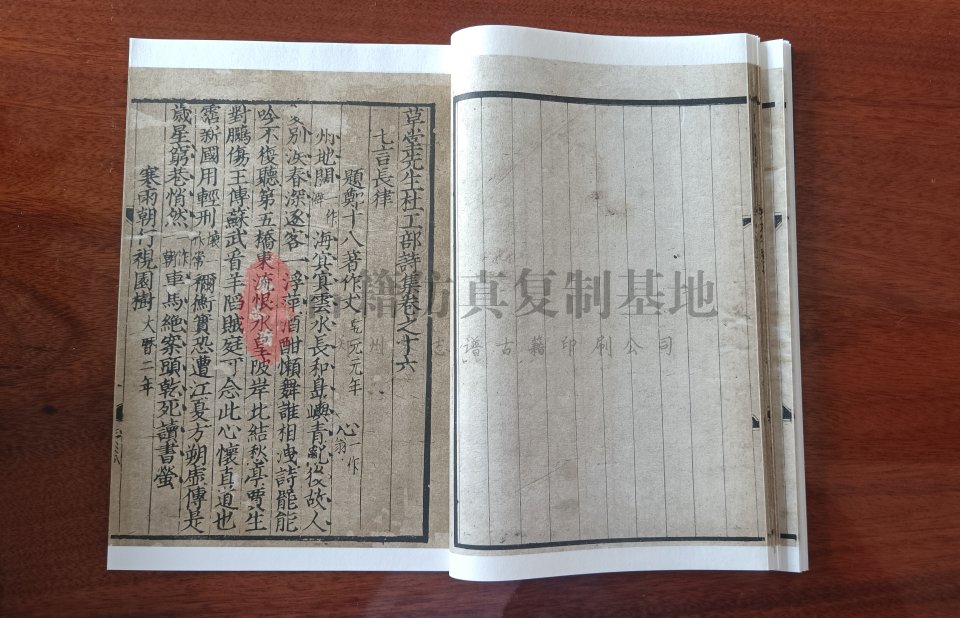 草堂先生杜工部詩集卷之十六
七言長律
題鄭十八著作丈 乾元元年
心一作翁
州地闊 一作 海冥冥雲水長和島嶼青亂後故人
別淚春深逐客一浮萍酒酣懶舞誰相洩詩罷能
吟不復聽第五橋東流恨水皇陂岸北結愁亭賈生
對鵩傷王傳蘇武 羊陷賊庭可念此心懷直道也
霑新國用輕刑 禰衡實恐遭江夏方朔虛傳是
歲星窮巷悄然 一作 車馬絕案頭乾死讀書螢
寒雨朝行視園樹 大曆二年
籍仿真复制基地
州 志谱古籍印刷公司